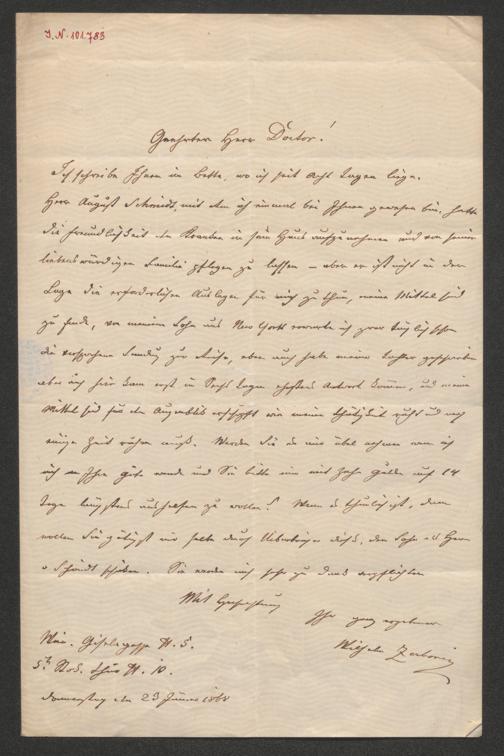 I.N. 101.783
Geehrter Herr Doctor!
Ich schreibe Ihnen im Bette, wo ich seit acht Tagen liege.
Herr August Schmidt, mit dem ich einmal bei Ihnen gewesen bin, hatte
die Freundlichkeit den Kranken in sein Haus aufzunehmen und von seiner
liebenswürdigen Familie pflegen zu lassen – aber er ist nicht in der
Lage die erforderlichen Auslagen für mich zu thun, meine Mittel sind
zu Ende, von meinem Sohn aus New York erwarte ich zwar täglich schon
die versprochene Sendung zur Reise, aber auch habe meiner Tochter geschrieben
aber auch hier kann erst in sechs Tagen Antwort kommen, und meine
Mittel sind für den Augenblick erschöpft wie meine Thätigkeit ruht und noch
einige Zeit ruhen muß. Werden Sie es mir übel nehmen wenn ich
mich an Ihre Güte wende und Sie bitte mir mit zehn Gulden auf 14
Tage längstens aushelfen zu wollen? Wenn es thunlich ist, dann
wollen Sie gütigst mir selbe durch Ueberbringer dieses, den Sohn des Herrn
Schmidt schicken. Sie werden mich sehr zu Dank verpflichten
Mit Hochachtung
Ihr ganz ergebener
Wilhelm
Wien. Giselagasse N. 5.
5t Stock Thür N. 10.
Donnerstag den 23